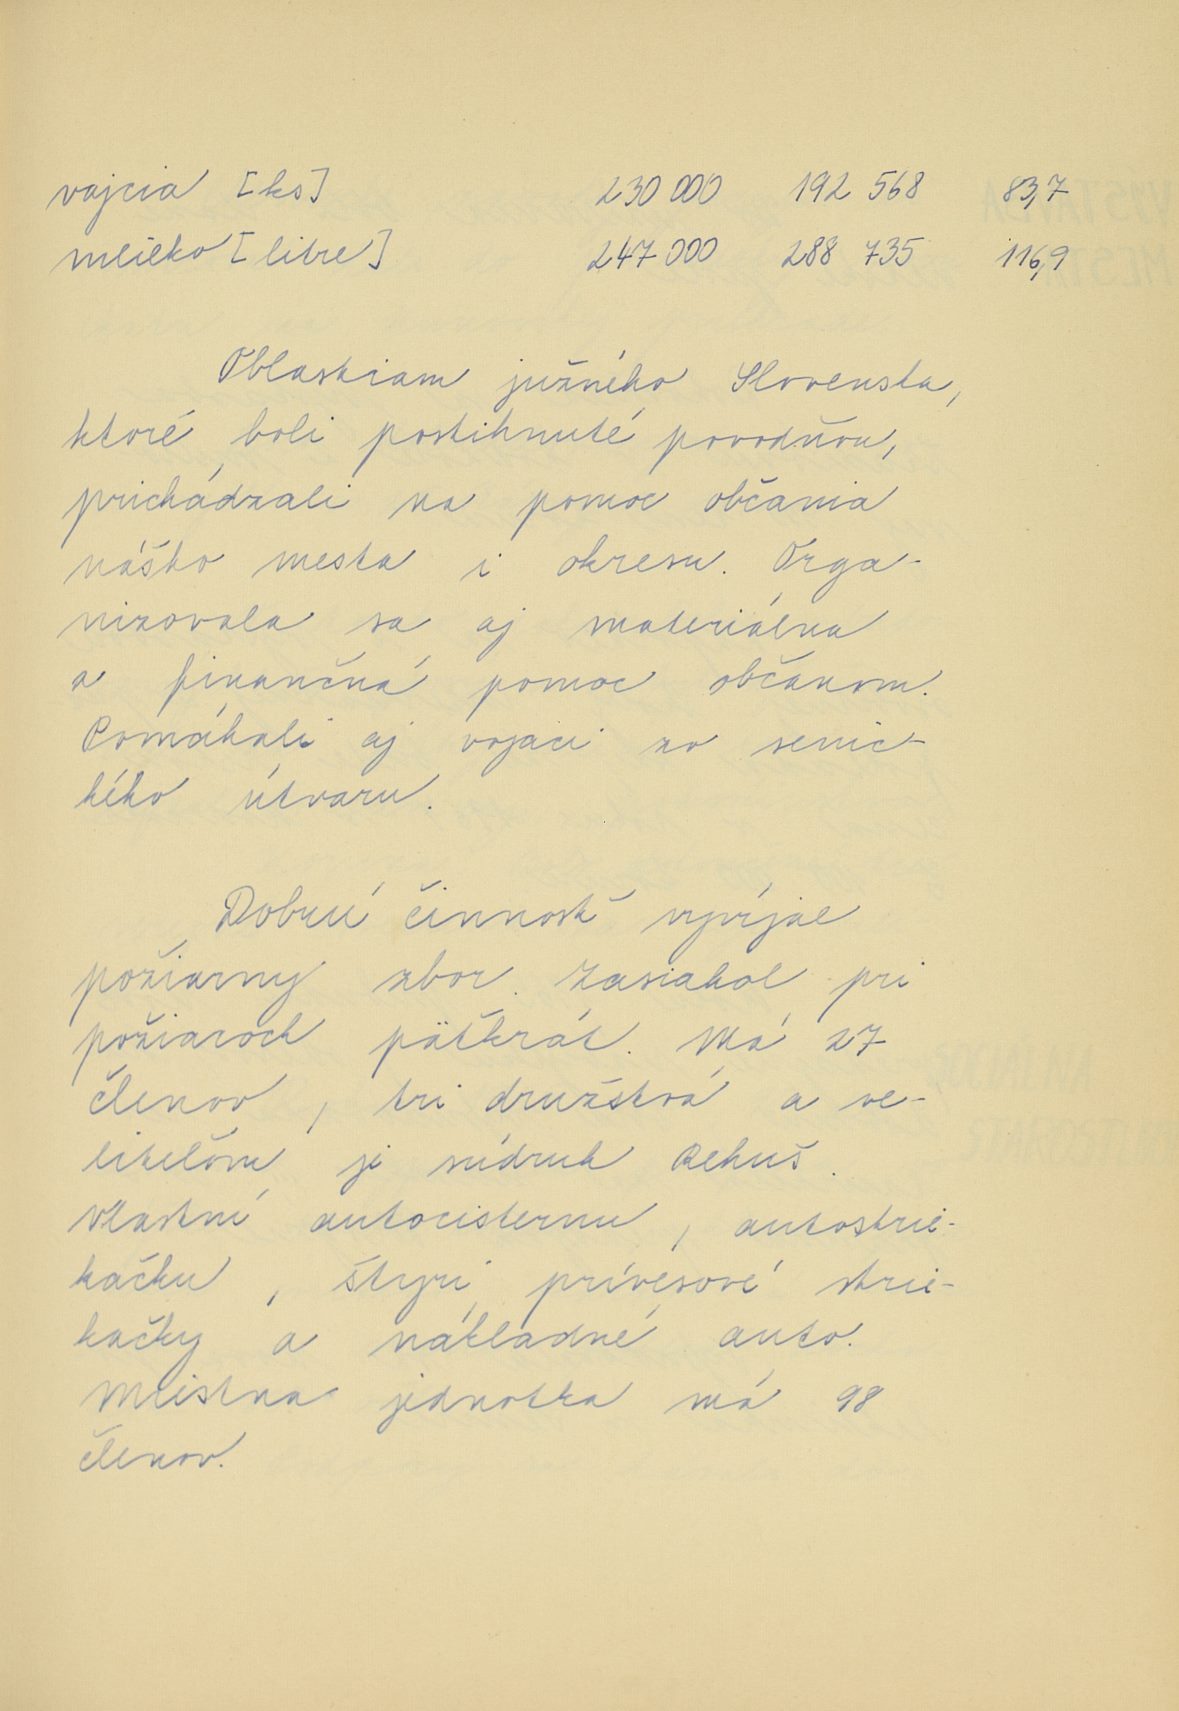 vajcia [ks] 230 000 192 568 83,7
mlieko [litre] 247 000 288 735 116,9
Oblastiam južného Slovenska,
ktoré boli postihnuté povodňou,
prichádzali na pomoc občania
nášho mesta i okresu. Orga-
nizovala sa aj materiálna
a finančná pomoc občanom.
Pomáhali aj vojaci zo senic-
kého útvaru.
Dobrú činnosť vyvíjal
požiarny zbor. Zasiahol pri
požiaroch päťkrát. Má 27
členov, tri družstvá a ve-
liteľom je súdruh Rehuš.
Vlastní autocisternu, autostrie-
kačku, štyri prívesové strie-
kačky a nákladné auto.
Miestna jednotka má 98
členov.